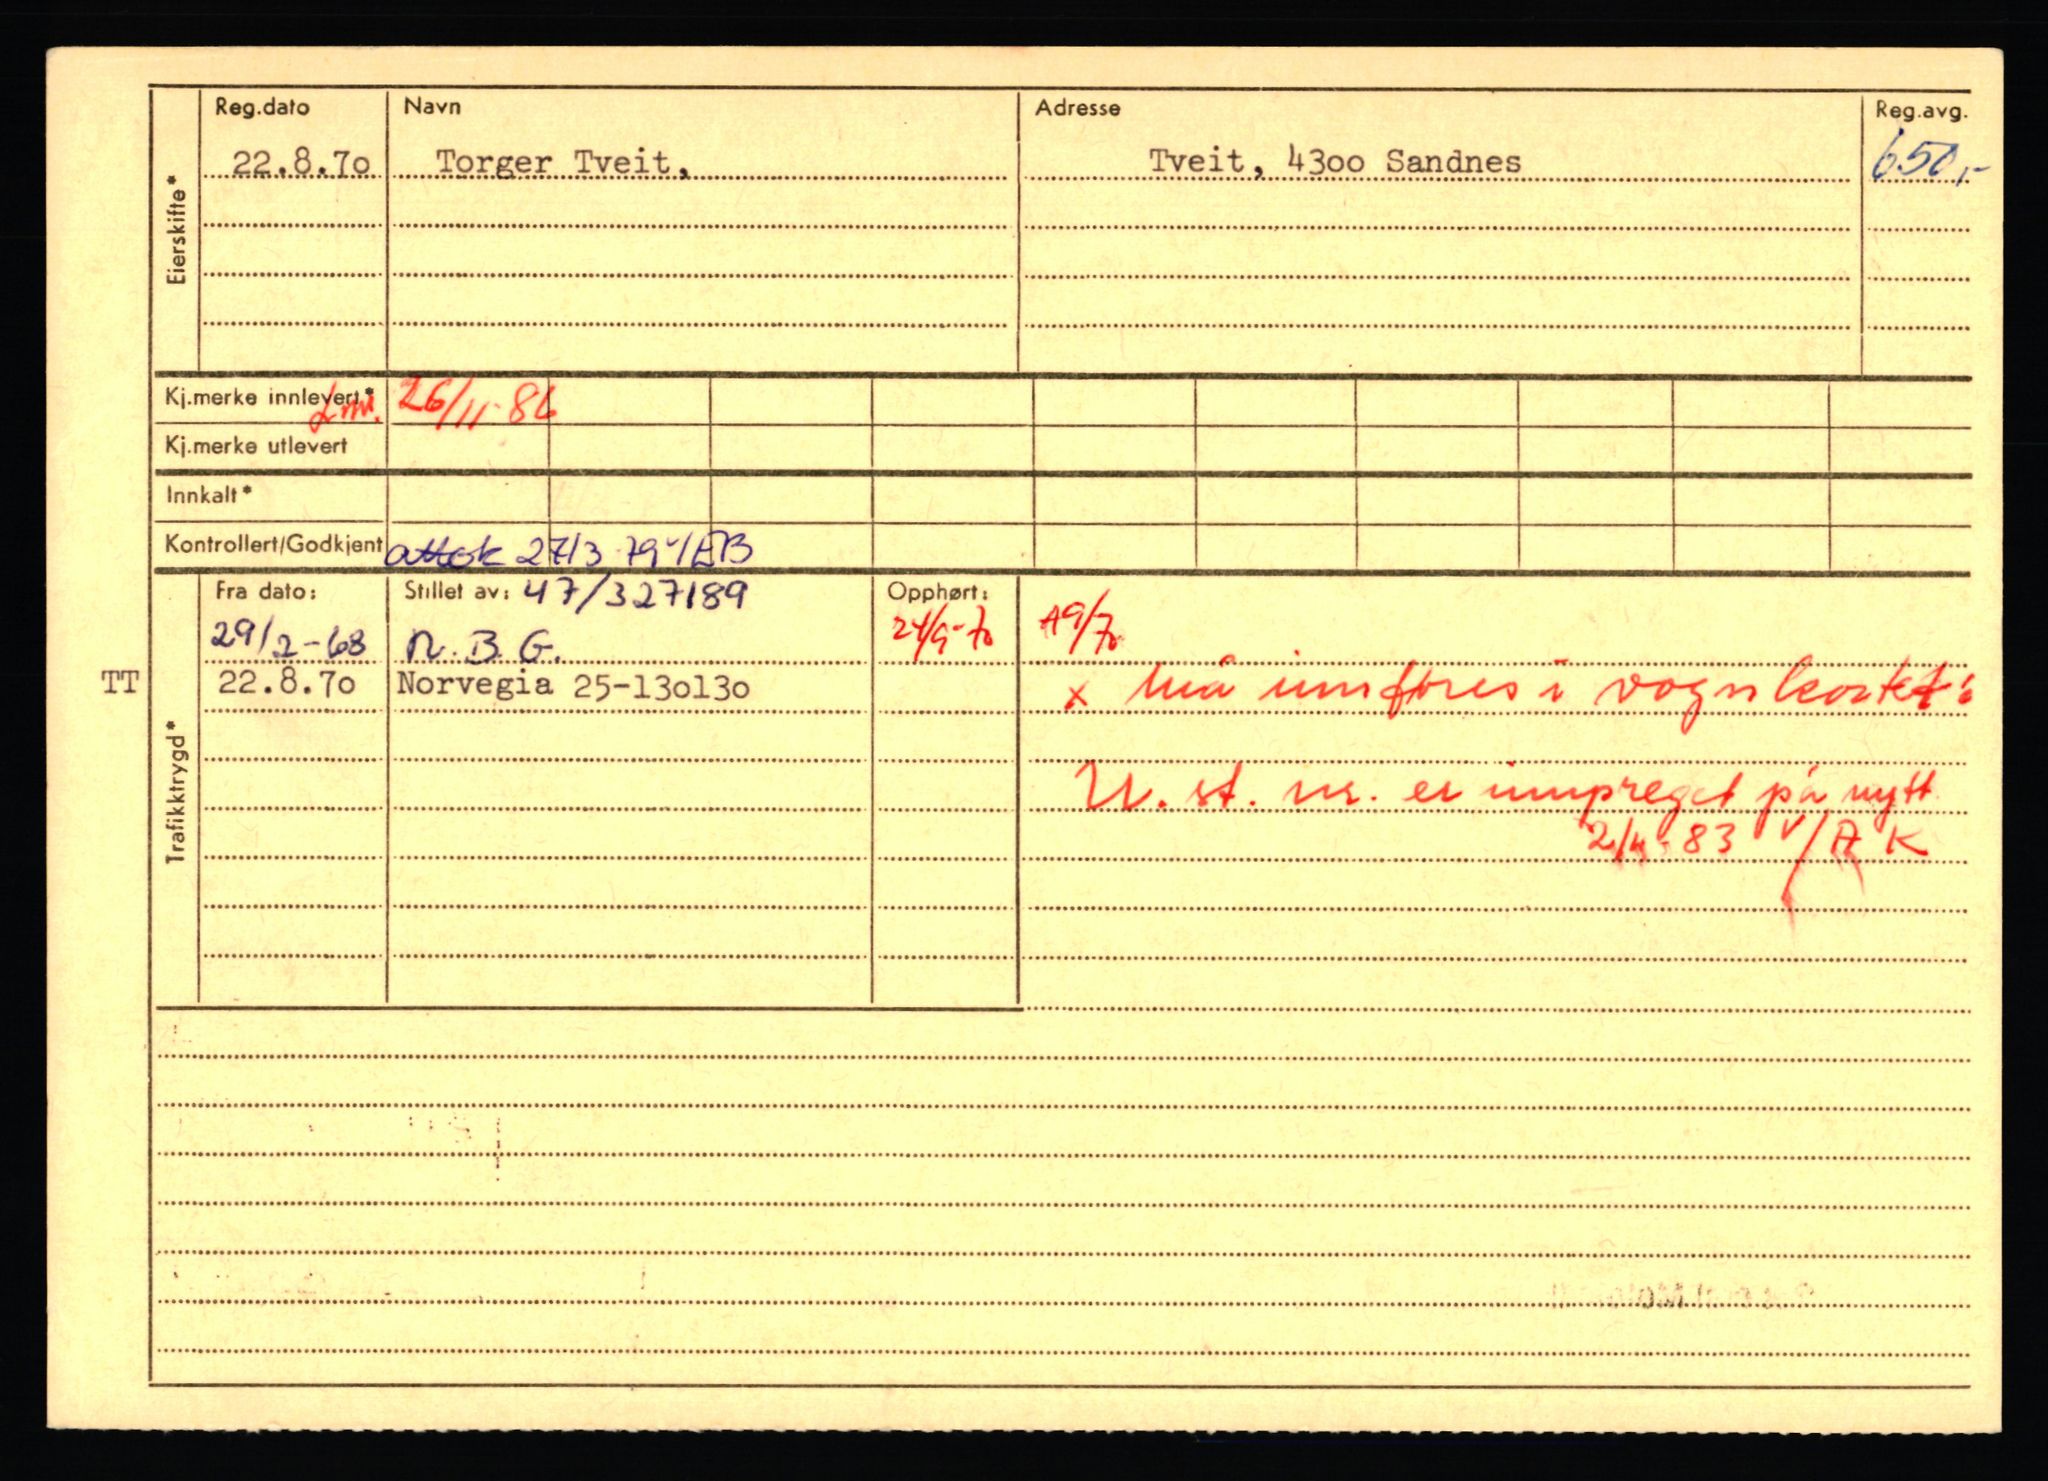 Reg.dato Navn Adresse Reg.avg.
22.8.70 Torger Tveit, Tveit, 4300 Sandnes 650,-
Eierskifte*
Kj.merke innlevert* 26/11-86
Kj.merke utlevert
Innkalt*
Kontrollert/Godkjent attok 27/3 79 v/EB
Fra dato: Stillet av: 47/327189 Opphørt:
29/2-68 N.B.G. 24/9-70 A9/70
TT 22.8.70 Norvegia 25-130130 x må innføres i vognkortet:
Trafikktrygd*
U. st. nr. er innpreget på nytt
2/4-83 v/A K